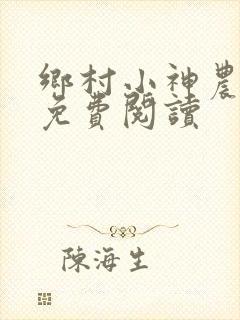 鄉村小神農
免費閱讀
陳海生